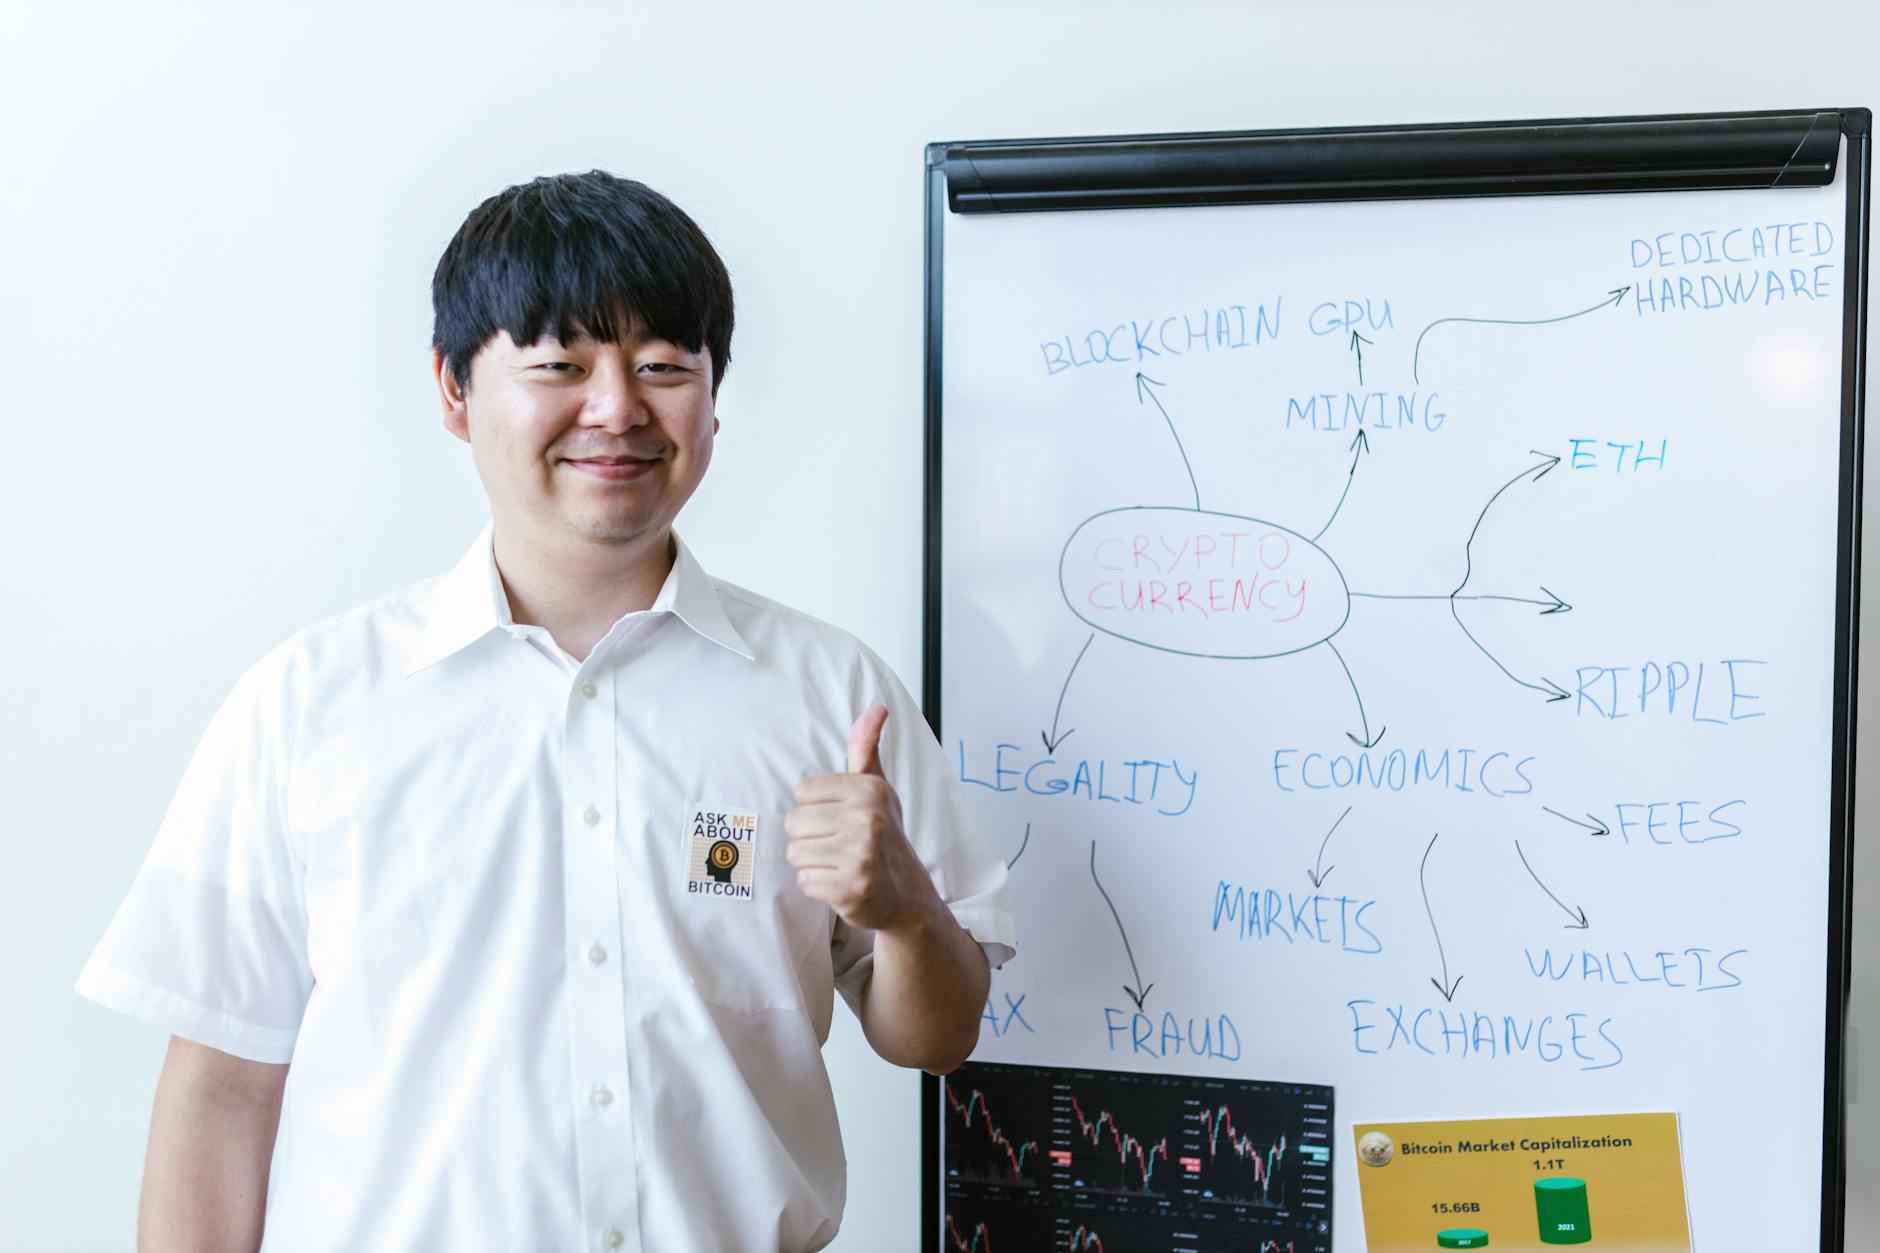 DEDICATED
HARDWARE
BLOCKCHAIN
GPU
MINING
ETH
CRYPTO
CURRENCY
RIPPLE
LEGALITY
ECONOMICS
FEES
MARKETS
WALLETS
AX
FRAUD
EXCHANGES
ASK ME
ABOUT
BITCOIN
Bitcoin Market Capitalization
1.1T
15.66B
2021
2017